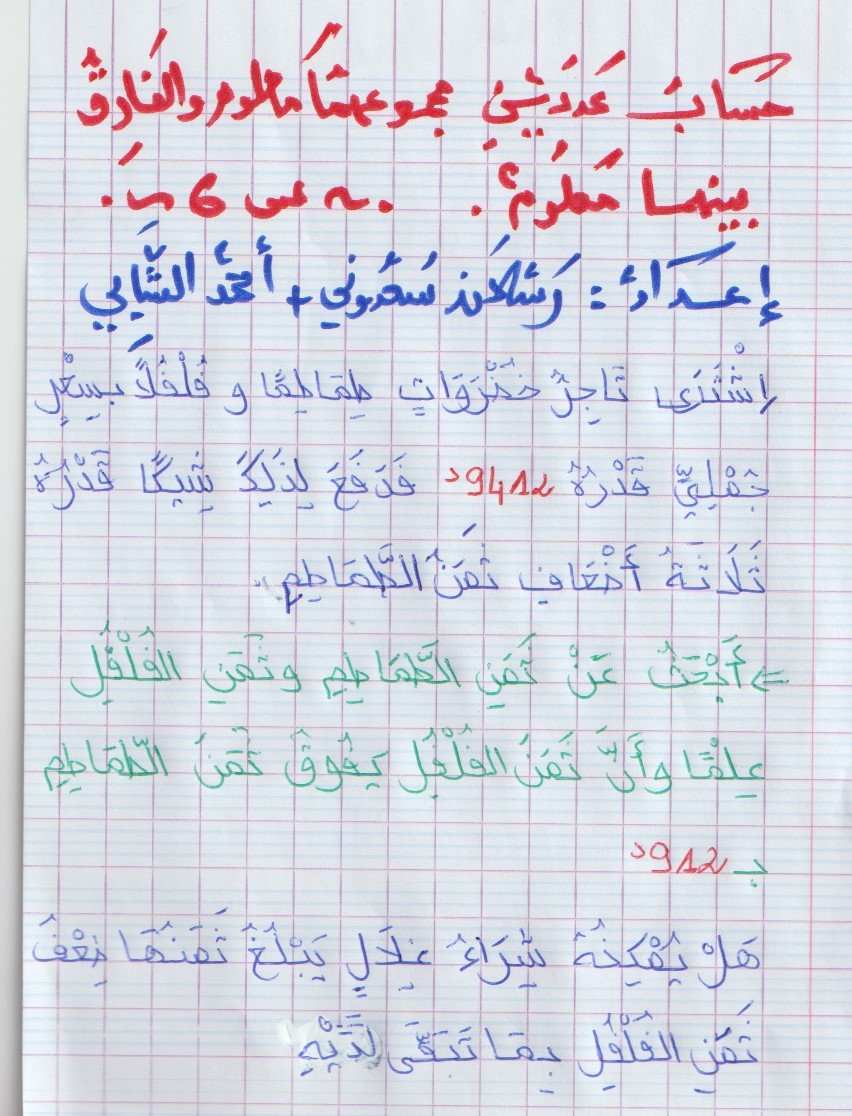 حساب عَدَدَيْنِ مجموعهما معلوم والفارق
بينهما معلوم.
إعداد: سعدوني + أحمد الشابي
اِشْتَرَى تَاجِرُ خُضْرَوَاتٍ طَمَاطِمًا و فُلْفُلًا بِسِعْرٍ
جُمْلِيٍّ قَدْرُهُ 9412د فَدَفَعَ لِذَلِكَ شِيكًا قَدْرُهُ
ثَلَاثَةُ أَضْعَافِ ثَمَنِ الطَّمَاطِمِ.
=> أَبْحَثُ عَنْ ثَمَنِ الطَّمَاطِمِ وثَمَنِ الفُلْفُلِ
عِلْمًا وأَنَّ ثَمَنَ الفُلْفُلِ يَفُوقُ ثَمَنَ الطَّمَاطِمِ
بـ 912د
هَلْ يُمْكِنُهُ شِرَاءُ غِلَالٍ يَبْلُغُ ثَمَنُهَا ضِعْفَ
ثَمَنِ الفُلْفُلِ بِمَا تَبَقَّى لَدَيْهِ